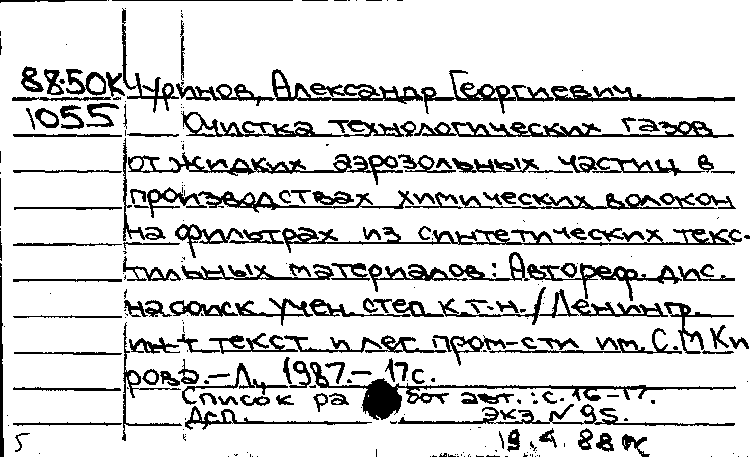 88-50К Чуринов, Александр Георгиевич.
1055 Очистка технологических газов
от жидких аэрозольных частиц в
производствах химических волокон
на фильтрах из синтетических текс-
тильных материалов: Автореф. дис.
на соиск. учен. степ. к.т.н. / Ленингр.
ин-т текст. и лег. пром-сти им. С.М Ки
рова. – Л., 1987. – 17 с.
Список ра бот авт.: с. 16-17.
Дсп. Экз. N 95.
5 19.4.88